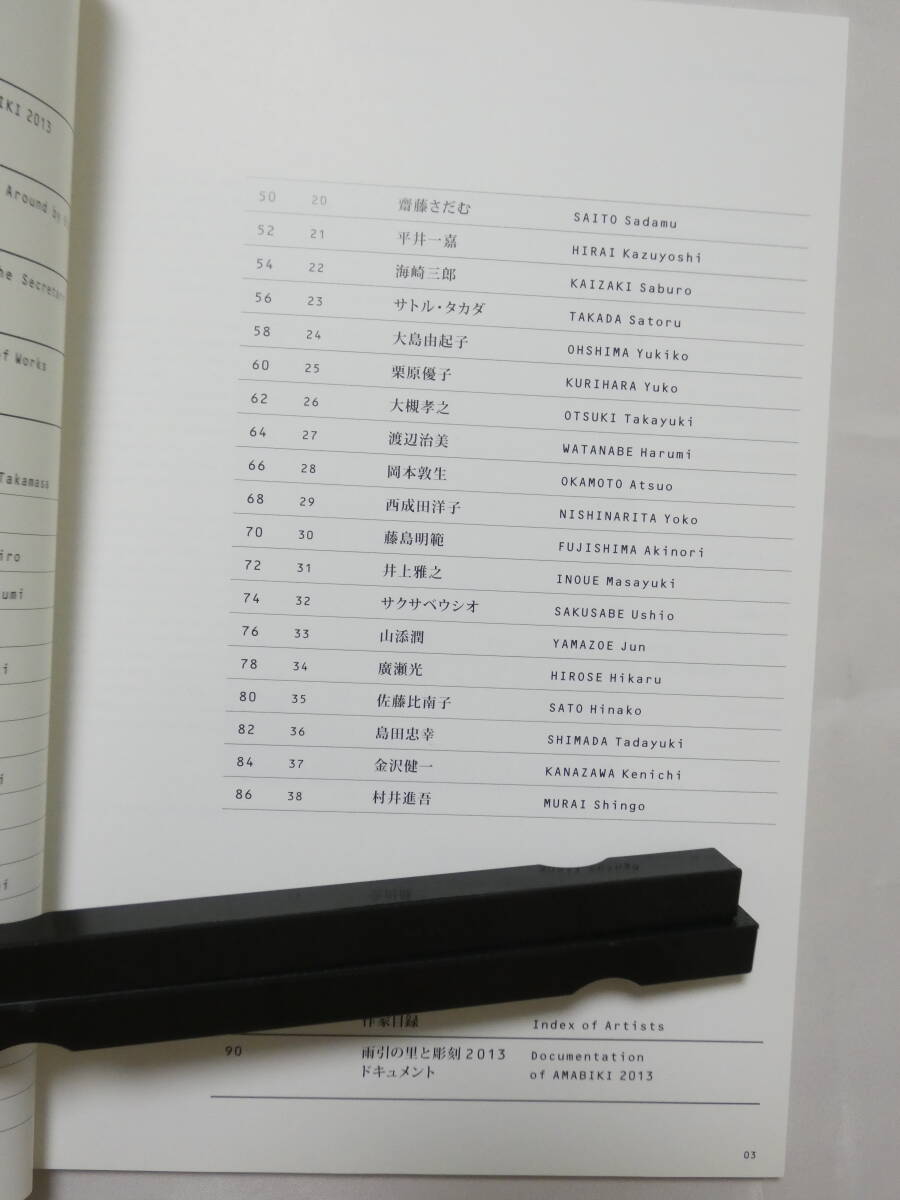 IKI 2013
Around by
he Secretar
of Works
Takamasa
iro
umi
i
i
i
50 20 齋藤さだむ SAITO Sadamu
52 21 平井一嘉 HIRAI Kazuyoshi
54 22 海崎三郎 KAIZAKI Saburo
56 23 サトル・タカダ TAKADA Satoru
58 24 大島由起子 OHSHIMA Yukiko
60 25 栗原優子 KURIHARA Yuko
62 26 大槻孝之 OTSUKI Takayuki
64 27 渡辺治美 WATANABE Harumi
66 28 岡本敦生 OKAMOTO Atsuo
68 29 西成田洋子 NISHINARITA Yoko
70 30 藤島明範 FUJISHIMA Akinori
72 31 井上雅之 INOUE Masayuki
74 32 サクサベウシオ SAKUSABE Ushio
76 33 山添潤 YAMAZOE Jun
78 34 廣瀬光 HIROSE Hikaru
80 35 佐藤比南子 SATO Hinako
82 36 島田忠幸 SHIMADA Tadayuki
84 37 金沢健一 KANAZAWA Kenichi
86 38 村井進吾 MURAI Shingo
作家目録 Index of Artists
90 雨引の里と彫刻2013 Documentation
ドキュメント of AMABIKI 2013
03